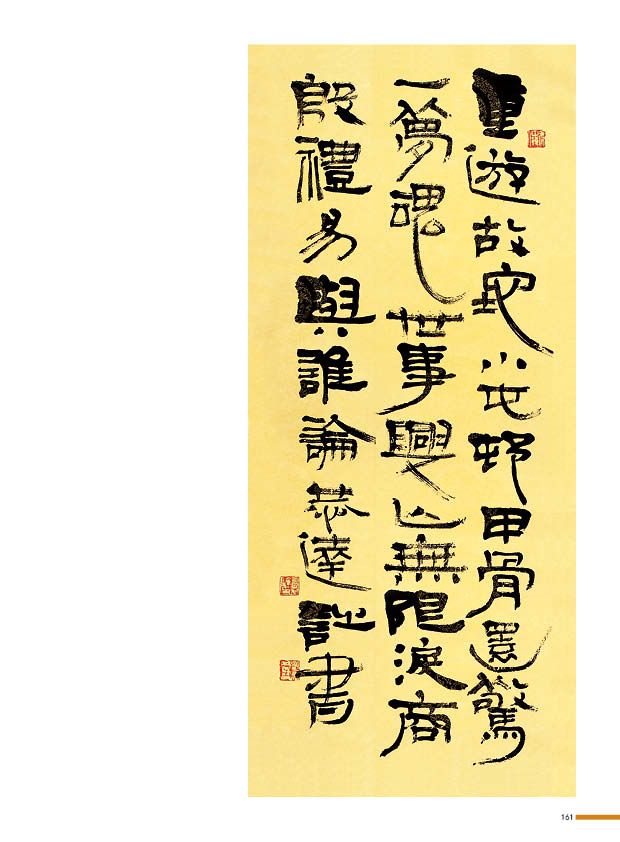 重遊故小屯邨甲骨還驚
一夢魂世事興亡無限淚商
殷禮易與誰論恭達詩書
161